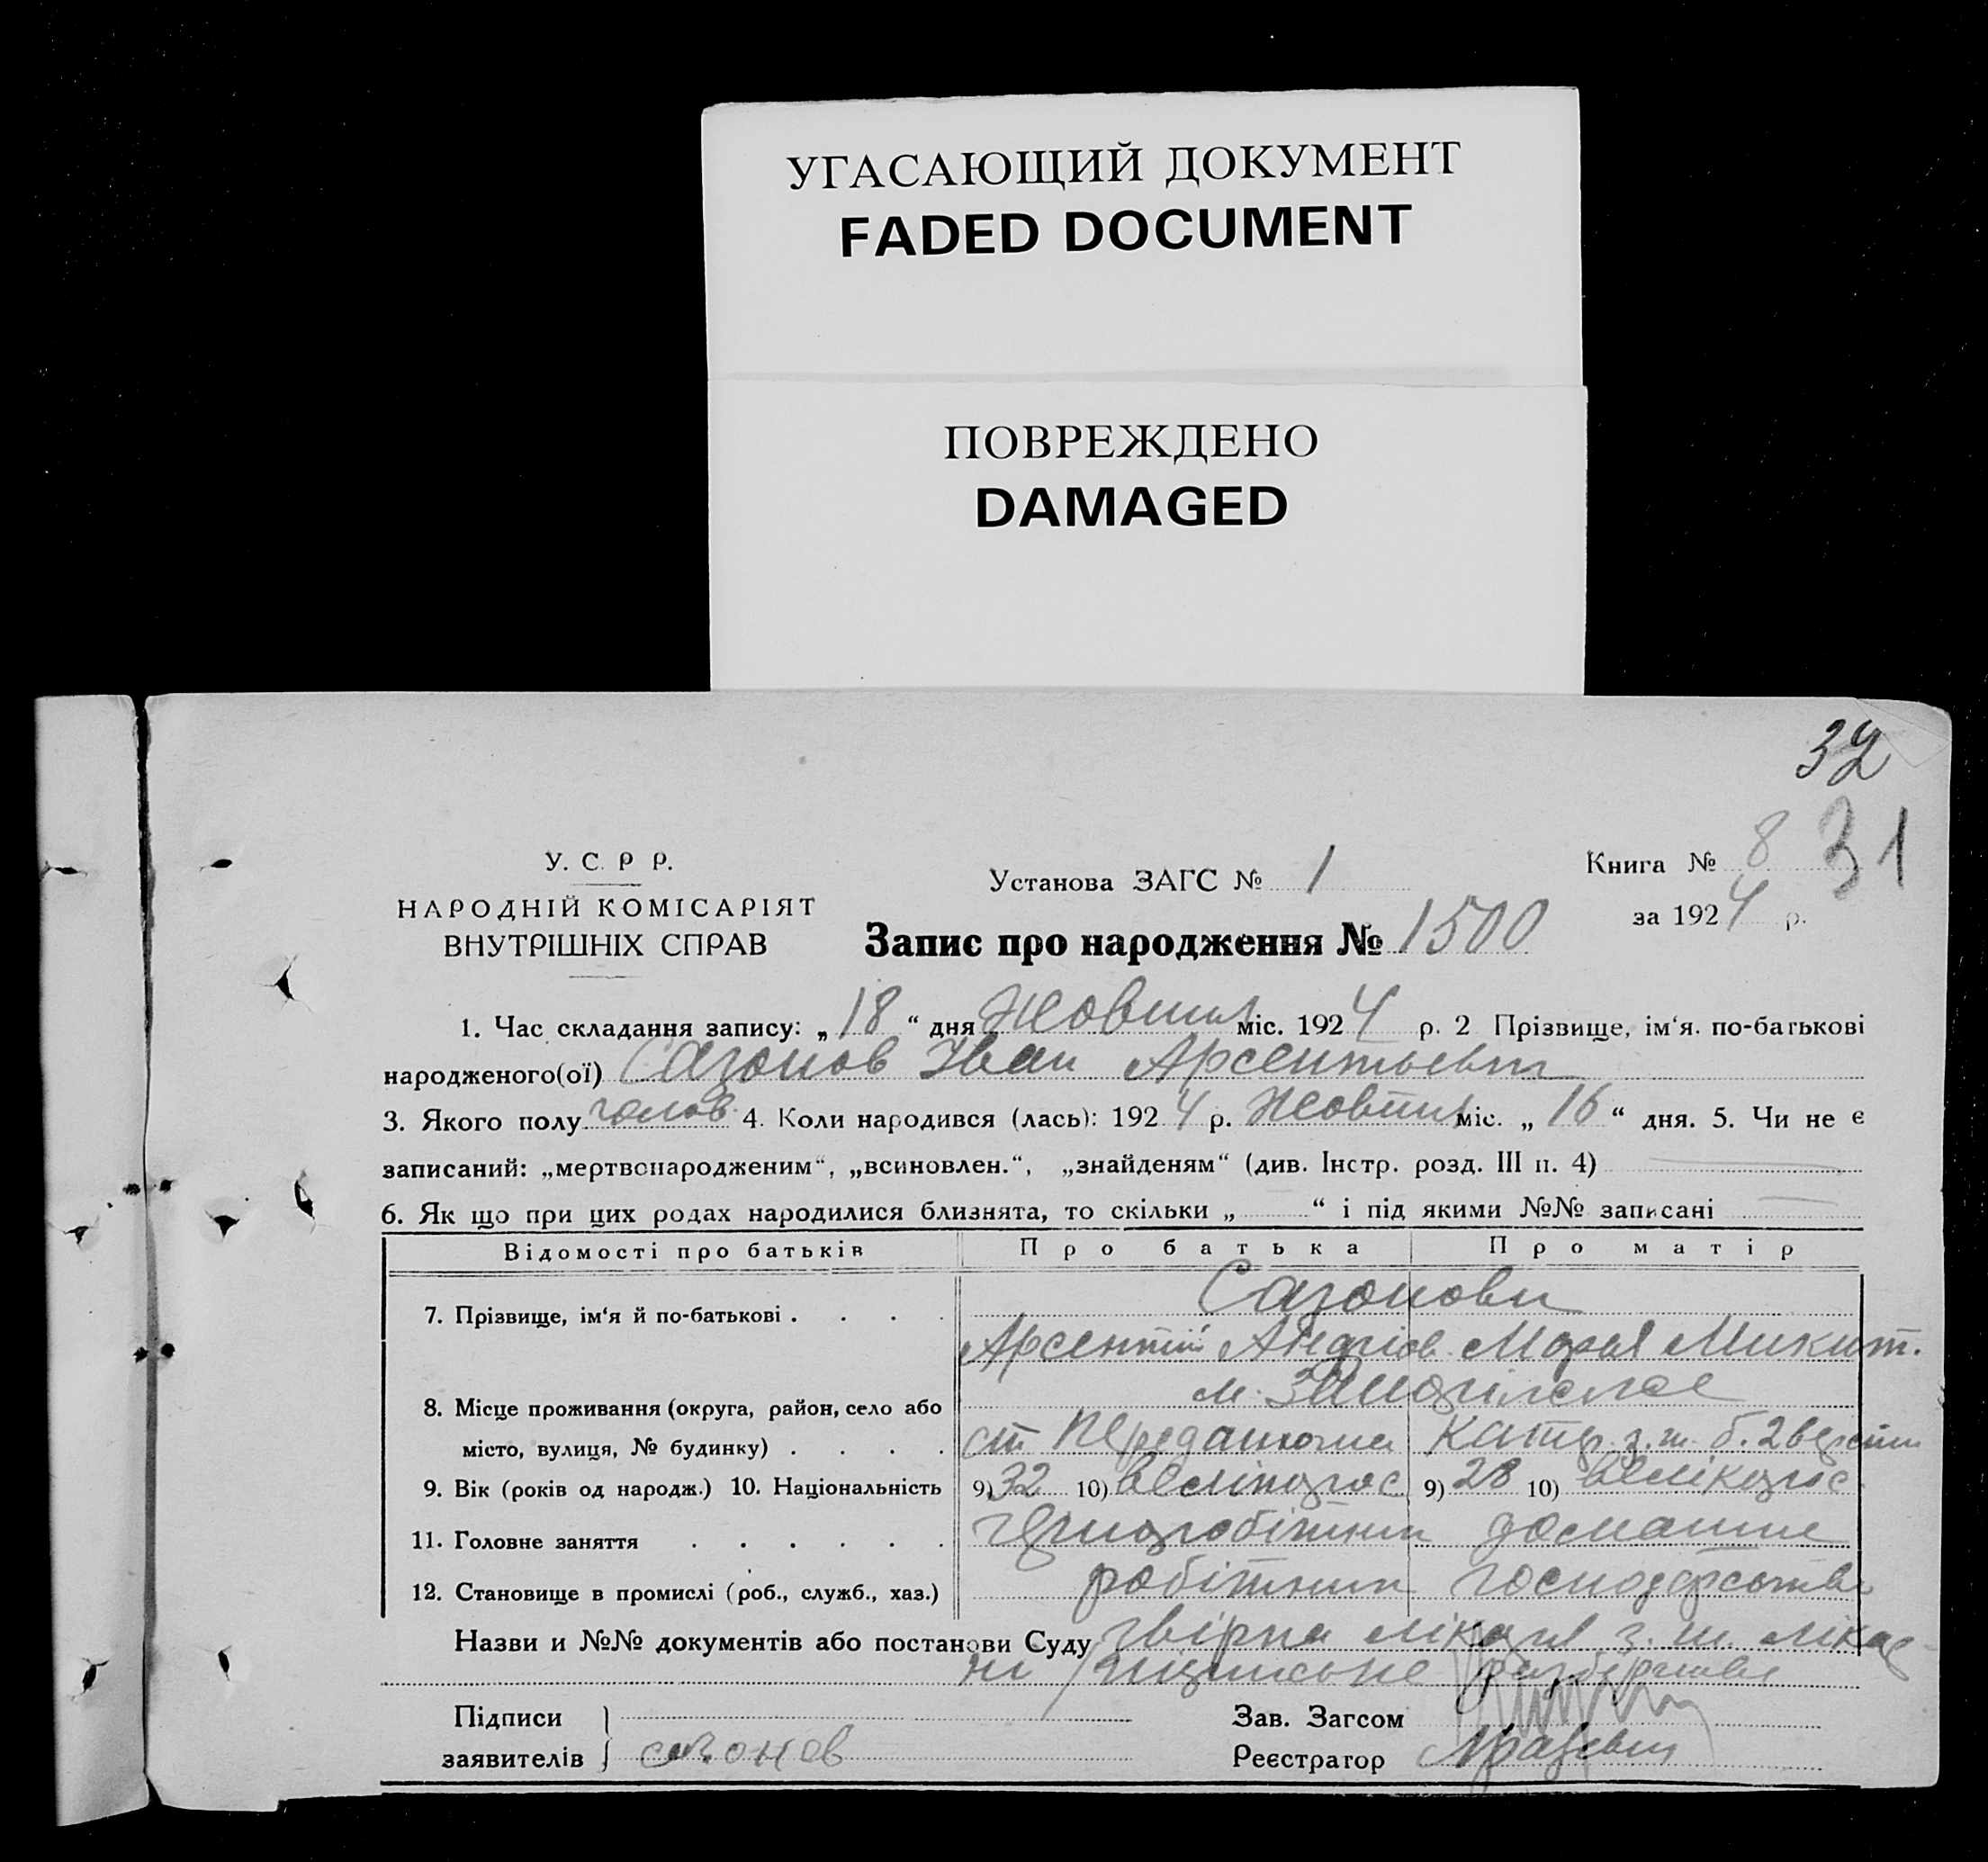 УГАСАЮЩИЙ ДОКУМЕНТ
FADED DOCUMENT
ПОВРЕЖДЕНО
DAMAGED
32
31
У. С. Р Р.
НАРОДНІЙ КОМІСАРІЯТ
ВНУТРІШНІХ СПРАВ
Установа ЗАГС № 1
Книга № 8
за 1924 р.
Запис про народження № 1500
1. Час складання запису: „18“ дня Жовтня міс. 1924 р. 2 Прізвище, ім‘я. по-батькові
народженого(ої) Сазонов Іван Арсентьевич
3. Якого полу чолов. 4. Коли народився (лась): 1924 р. Жовтня міс. „16“ дня. 5. Чи не є
записаний: „мертвонародженим“, „всиновлен.“, „знайденям“ (див. Інстр. розд. III п. 4)
6. Як що при цих родах народилися близнята, то скільки „ “ і під якими №№ записані
Відомості про батьків Про батька Про матір
7. Прізвище, ім‘я й по-батькові . . . . Сазонови
Арсентій Андріов. Марья Микит.
8. Місце проживання (округа, район, село або
місто, вулиця, № будинку) . . . . ст Катер. з. ш. б. 2 версти
9. Вік (років од народж.) 10. Національність 9) 32 10) великорос 9) 28 10) велікорос
11. Головне заняття . . . . . . чорноробітник домашне
12. Становище в промислі (роб., служб., хаз.) робітник господарство
Назви и №№ документів або постанови Суду звірка лікаря з. ш. лікар
ні
Підписи
заявителів } сазонов
Зав. Загсом
Реєстратор